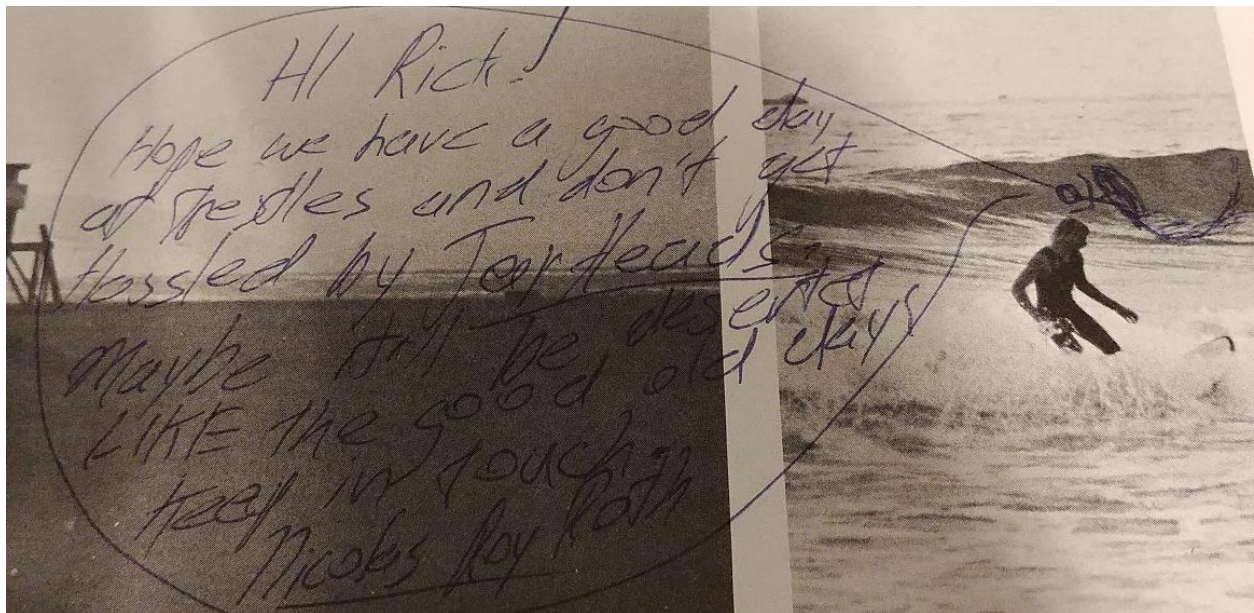 HI Rich!
Hope we have a good day
at Needles and don't get
Hassled by Tear Heads.
Maybe it'll be deserted
LIKE the good old days
Keep in touch,
Nicolas Roy Roth